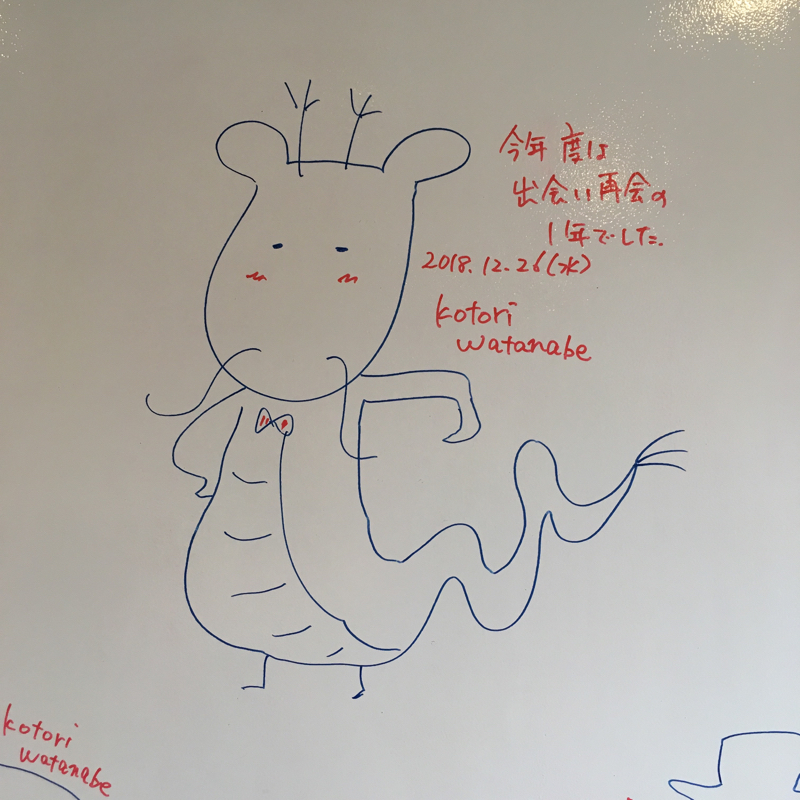 今年度は
出会い再会の
1年でした。
2018.12.26(水)
kotori
watanabe
kotori
watanabe